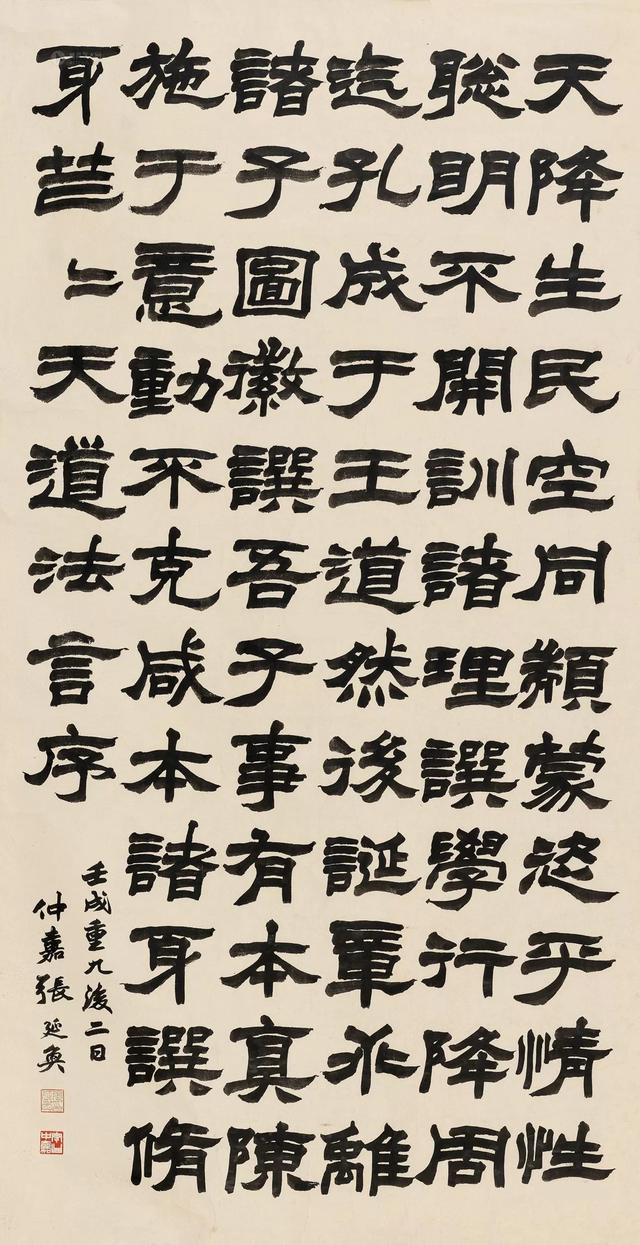 天降生民空同顓蒙恣乎情性
聦明不開訓諸理譔學行降周
迄孔成于王道然後誕章乖離
諸子圖徽譔吾子事有本真陳
施于意動不克咸本諸身譔脩
身芒〻天道法言序
壬戌重九後二日
仲嘉張延奐